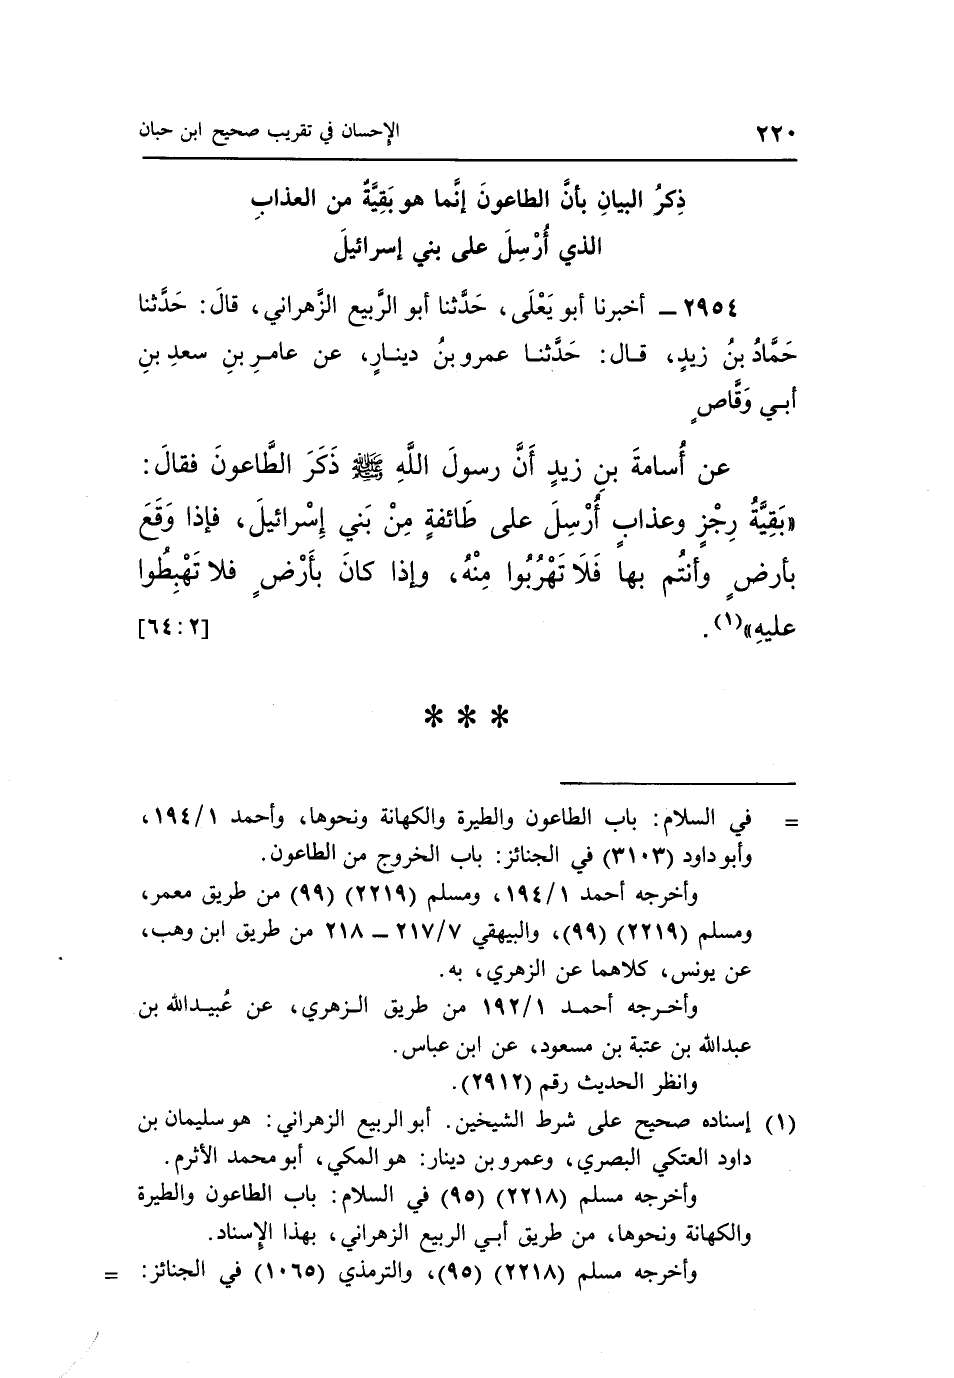 ٢٢٠ الإحسان في تقريب صحيح ابن حبان
ذِكرُ البيانِ بأنَّ الطاعونَ إنَّما هو بَقِيَّةٌ من العذابِ
الذي أُرْسِلَ على بني إسرائيلَ
٢٩٥٤ ــ أخبرنا أبو يَعْلَى، حَدَّثنا أبو الرَّبيع الزَّهراني، قالَ: حَدَّثنا
حَمَّادُ بنُ زيدٍ، قال: حَدَّثنا عمرو بنُ دينارٍ، عن عامرِ بنِ سعدِ بنِ
أبي وَقَّاصٍ
عن أُسامةَ بنِ زيدٍ أَنَّ رسولَ اللَّهِ ﷺ ذَكَرَ الطَّاعونَ فقالَ:
«بَقِيَّةُ رِجْزٍ وعذابٍ أُرْسِلَ على طَائفةٍ مِنْ بَني إِسْرائيلَ، فإذا وَقَعَ
بأرضٍ وأنتُم بها فَلَا تَهْرُبُوا مِنْهُ، وإذا كانَ بأَرْضٍ فلا تَهْبِطُوا
عليهِ»(١). [٢: ٦٤]
* * *
= في السلام: باب الطاعون والطيرة والكهانة ونحوها، وأحمد ١/١٩٤،
وأبو داود (٣١٠٣) في الجنائز: باب الخروج من الطاعون.
وأخرجه أحمد ١/١٩٤، ومسلم (٢٢١٩) (٩٩) من طريق معمر،
ومسلم (٢٢١٩) (٩٩)، والبيهقي ٧/٢١٧ ــ ٢١٨ من طريق ابن وهب،
عن يونس، كلاهما عن الزهري، به.
وأخرجه أحمد ١/١٩٢ من طريق الزهري، عن عُبيدالله بن
عبدالله بن عتبة بن مسعود، عن ابن عباس.
وانظر الحديث رقم (٢٩١٢).
(١) إسناده صحيح على شرط الشيخين. أبو الربيع الزهراني: هو سليمان بن
داود العتكي البصري، وعمرو بن دينار: هو المكي، أبو محمد الأثرم.
وأخرجه مسلم (٢٢١٨) (٩٥) في السلام: باب الطاعون والطيرة
والكهانة ونحوها، من طريق أبي الربيع الزهراني، بهذا الإسناد.
وأخرجه مسلم (٢٢١٨) (٩٥)، والترمذي (١٠٦٥) في الجنائز: =